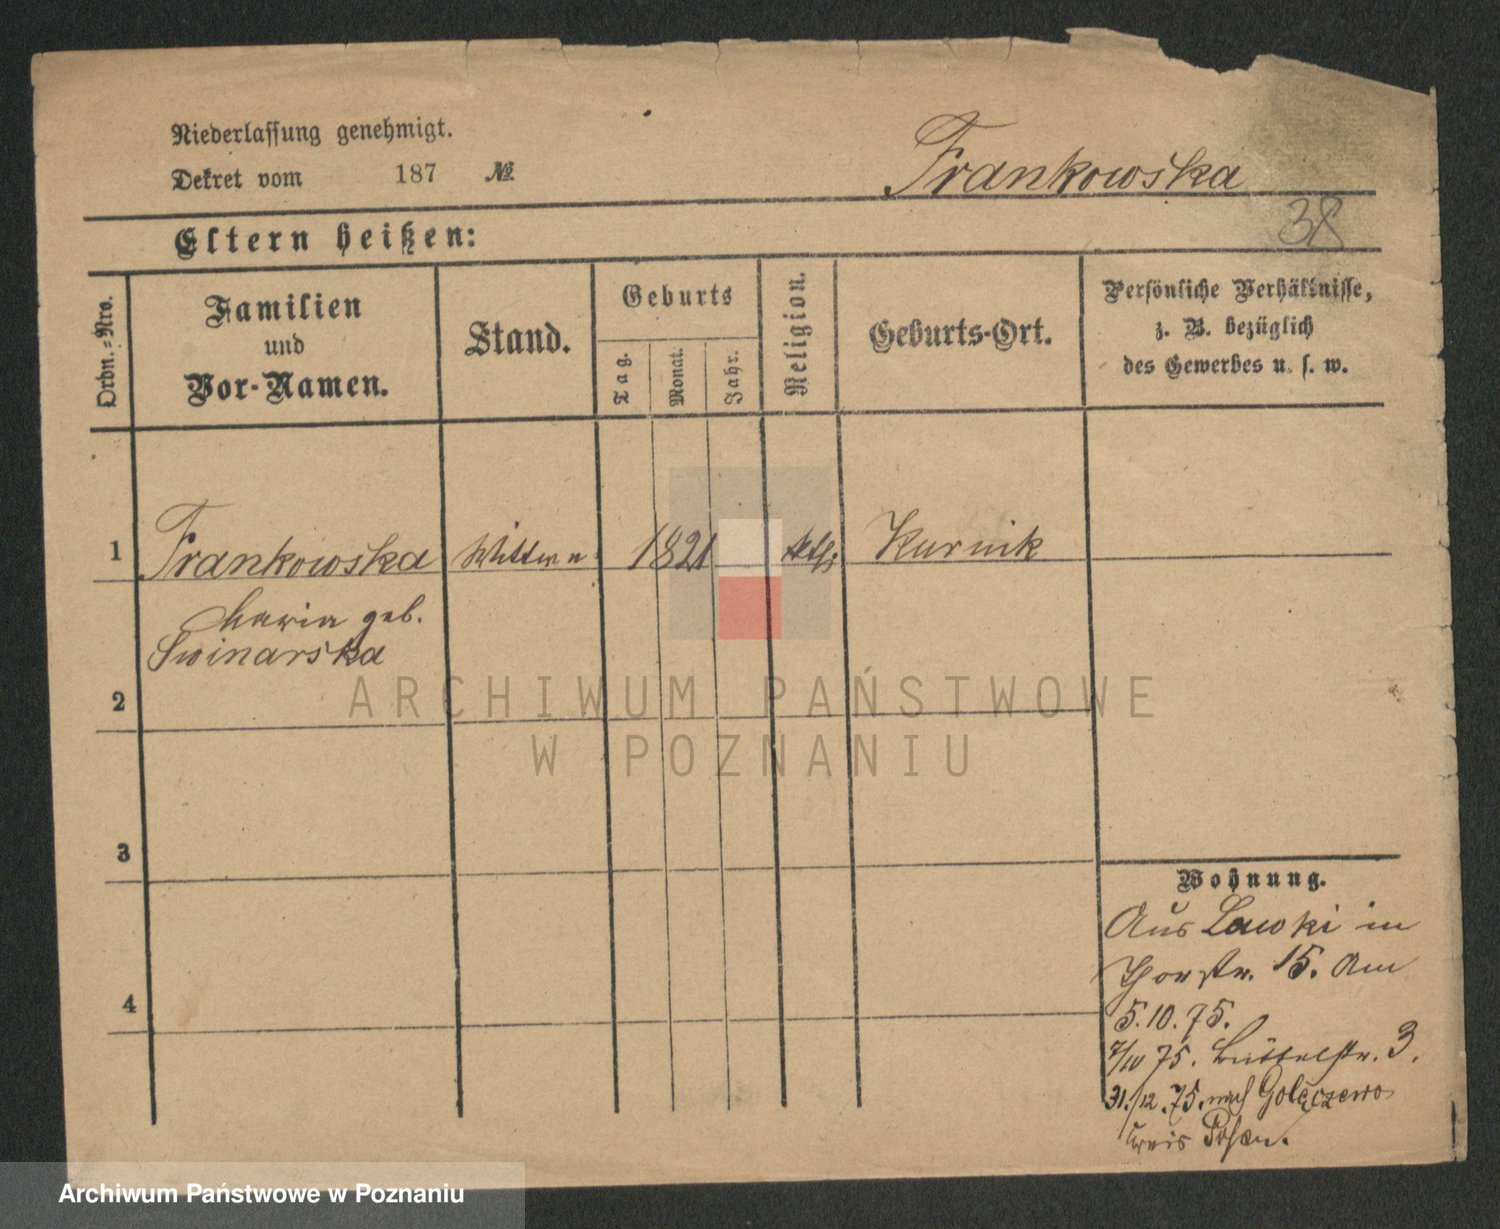 Niederlassung genehmigt.
Dekret vom 187 №
Frankowska
38
Eltern heißen:
Ordn.=Nro.
Familien
und
Vor-Namen.
Stand.
Geburts
Tag.
Monat.
Jahr.
Religion.
Geburts-Ort.
Persönliche Verhältnisse,
z. B. bezüglich
des Gewerbes u. s. w.
1 Frankowska Wittwe 1821 kath. Kurnik
Maria geb.
Swinarska
2
3
4
Wohnung.
Aus Lawki in
15. Am
5.10.75.
7/10 75. Büttelstr. 3.
31./12.75. nach Golęczewo
Kreis Posen.
ARCHIWUM PAŃSTWOWE
W POZNANIU
Archiwum Państwowe w Poznaniu